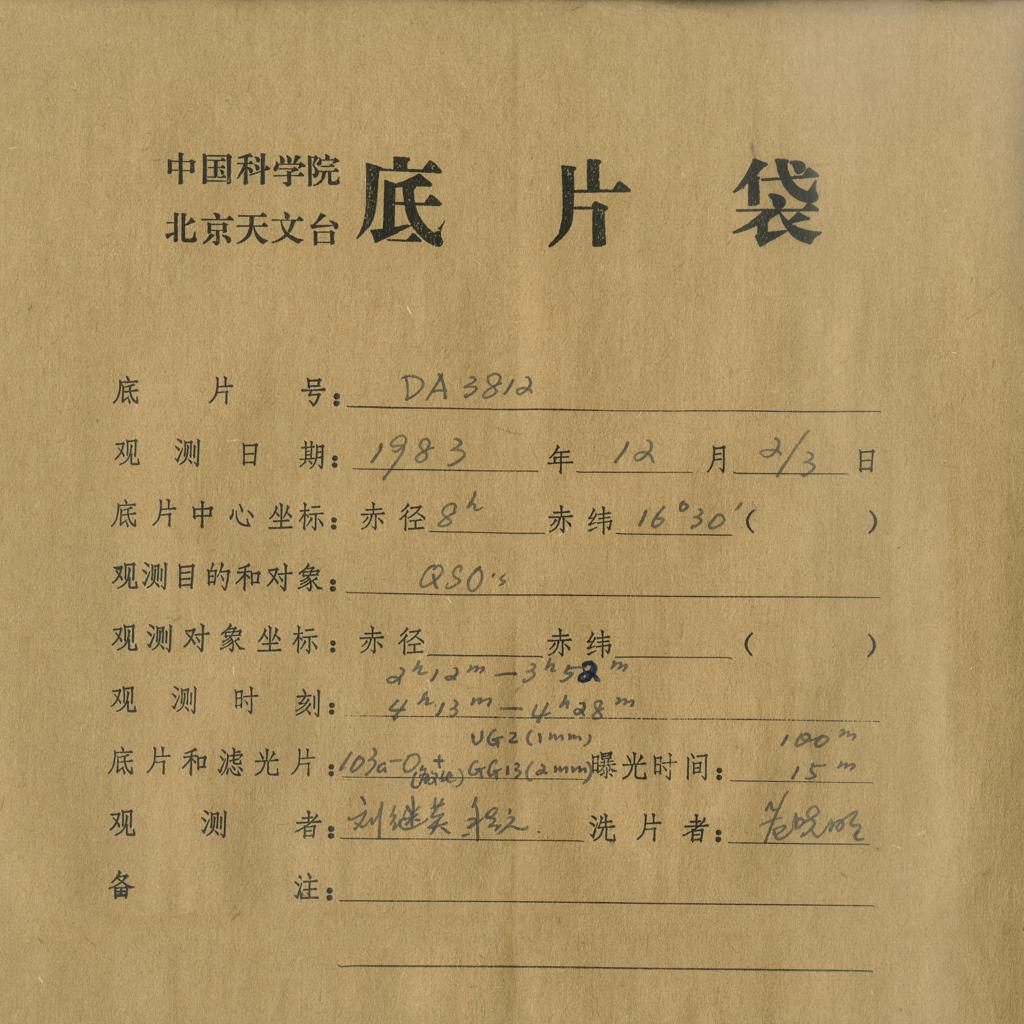 中国科学院
北京天文台
底片袋
底片号: DA 3812
观测日期: 1983 年 12 月 2/3 日
底片中心坐标: 赤径 8ʰ 赤纬 16°30′ ( )
观测目的和对象: QSO's
观测对象坐标: 赤径 赤纬 ( )
2ʰ12ᵐ — 3ʰ52ᵐ
观测时刻: 4ʰ13ᵐ — 4ʰ28ᵐ
UG2(1mm) 100ᵐ
底片和滤光片: 103a-O + GG13(2mm) 曝光时间: 15ᵐ
观测者: 刘继英 洗片者:
备注: